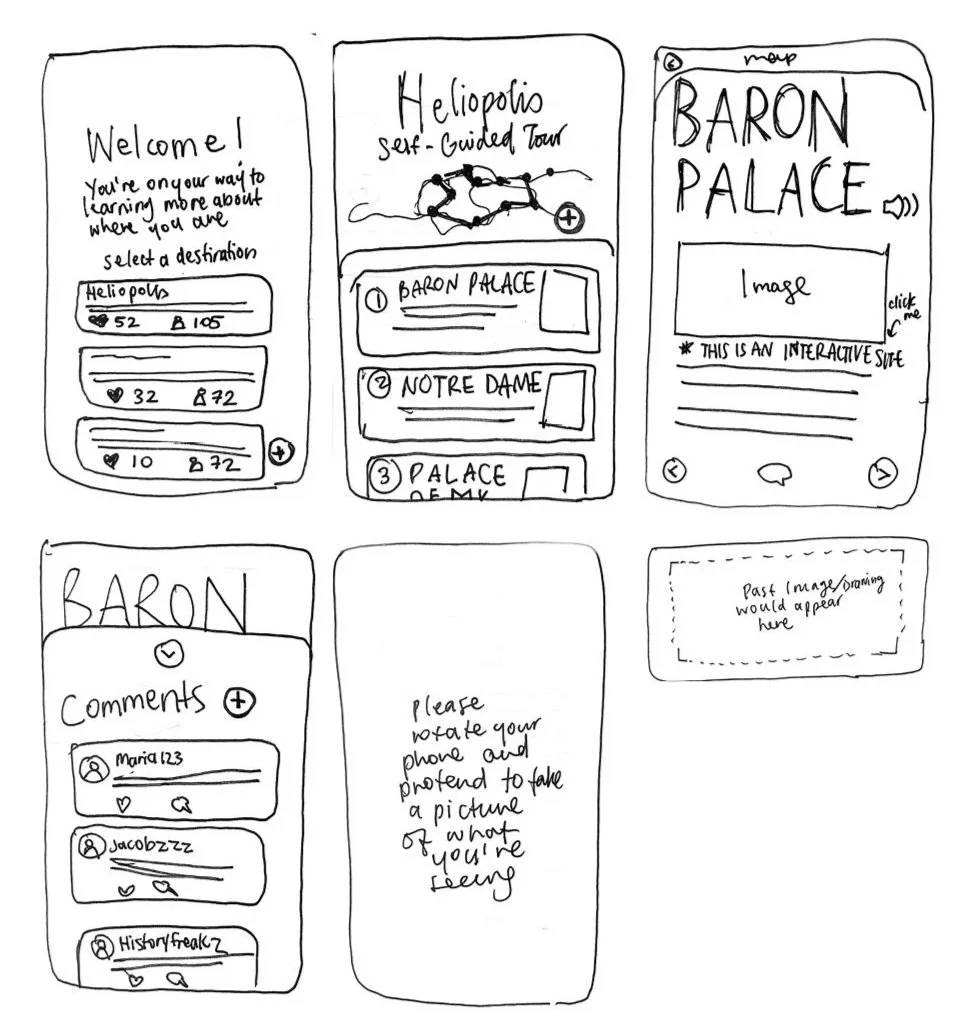 Welcome!
You're on your way to
learning more about
where you are
select a destination
Heliopolis
52 105
32 72
10 72
Heliopolis
Self-Guided Tour
1 BARON PALACE
2 NOTRE DAME
3 PALACE
OF MY
map
BARON
PALACE
Image
click
me
* THIS IS AN INTERACTIVE SITE
BARON
Comments
Maria123
Jacobzzz
Historyfreakz
Please
rotate your
phone and
pretend to take
a picture
of what
you're
seeing
Past Image/Drawing
would appear
here